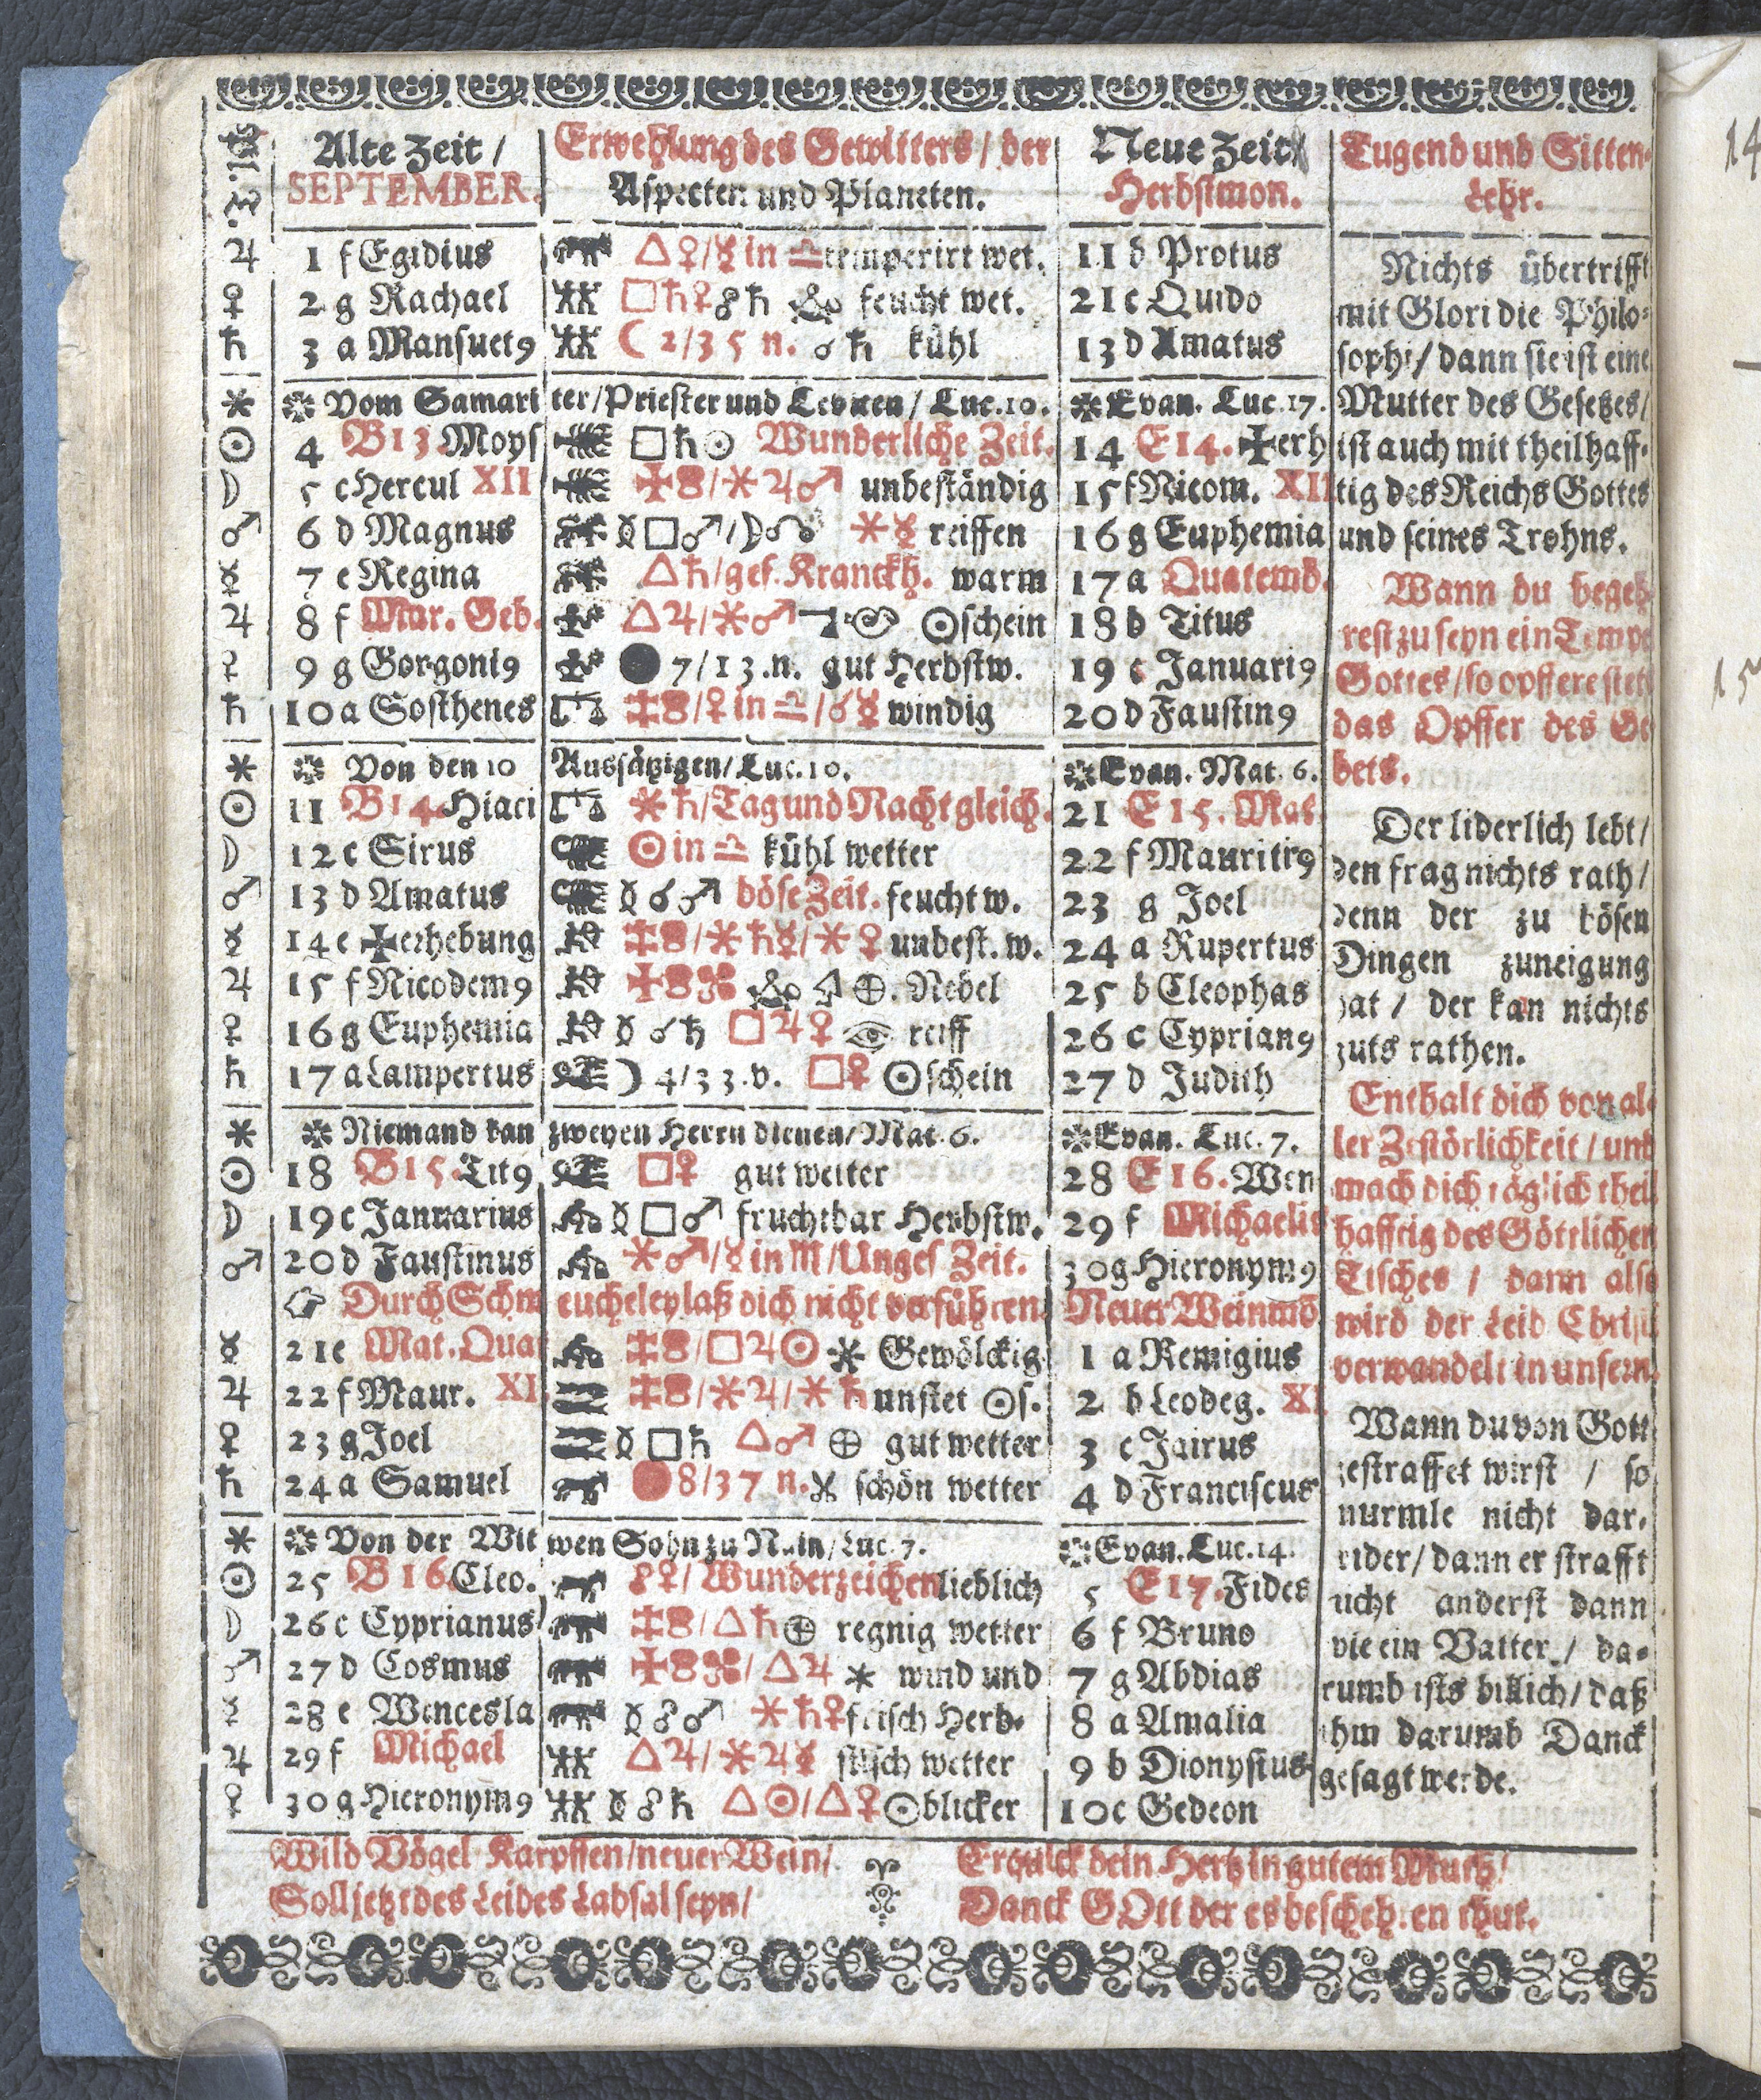 Alte Zeit /
SEPTEMBER.
Erwehlung des Gewitters / der
Aspecten und Planeten.
Neue Zeit
Herbstmon.
Tugend und Sitten-
Lehr.
♃ 1 f Egidius △♀/☿ in ♎ temperirt wet. 11 b Protus
♀ 2 g Rachael □♄♀☍♄ feucht wet. 21 c Quido
♄ 3 a Mansuet9 ☾ 2/35 n. ☌♄ kühl 13 d Amatus
* Vom Samari ter/Priester und Leviten / Luc. 10. Evan. Luc. 17.
☉ 4 B13. Moys □♄☉ Wunderliche Zeit. 14 E14. ✠erh
☽ 5 c Hercul XII /✶♃♂ unbeständig 15 f Nicom. XII
♂ 6 d Magnus ☿□♂/☽☊ ✶☿ reiffen 16 g Euphemia
☿ 7 e Regina △♄/gef. Kranckh. warm 17 a Quatemb.
♃ 8 f Mar. Geb. △♃/✶♂ ☉schein 18 b Titus
♀ 9 g Gorgoni9 ● 7/13.n. gut Herbstw. 19 c Januari9
♄ 10 a Sosthenes /♀ in ♎/☌☿ windig 20 d Faustin9
* Von den 10 Aussätzigen/Luc. 10. Evan. Mat. 6.
☉ 11 B14. Hiaci ✶♄/Tag und Nacht gleich. 21 E15. Mat
☽ 12 c Sirus ☉ in ♎ kühl wetter 22 f Mauriti9
♂ 13 d Amatus ☿☌♂ böse Zeit. feucht w. 23 g Joel
☿ 14 e ✠erhebung /✶♄☿/✶♀ unbest. w. 24 a Rupertus
♃ 15 f Nicodem9 ⊕. Nebel 25 b Cleophas
♀ 16 g Euphemia ☿☌♄ □♃♀ reiff 26 c Cyprian9
♄ 17 a Lampertus ☽ 4/33.v. □♀ ☉schein 27 d Judith
* Niemand kan zweyen Herrn dienen/Mat. 6. Evan. Luc. 7.
☉ 18 B15. Tit9 □♀ gut wetter 28 E16. Wen
☽ 19 c Januarius ☿□♂ fruchtbar Herbstw. 29 f Michaelis
♂ 20 d Faustinus ✶♂/☿ in ♏/Unges Zeit. 30 g Hieronym9
Durch Schm eucheley laß dich nicht verführen. Neuer Weinmo.
☿ 21 e Mat. Quat /□♃☉ ✶ Gewölckig 1 a Remigius
♃ 22 f Maur. XI /✶♃/✶♄ unstet ☉s. 2 b Leodeg. XI
♀ 23 g Joel ☿□♄ △♂ ⊕ gut wetter 3 c Jairus
♄ 24 a Samuel ● 8/37 n. schön wetter 4 d Franciscus
* Von der Wit wen Sohn zu Nain/Luc. 7. Evan. Luc. 14.
☉ 25 B16. Cleo. ☍♀/Wunderzeichen lieblich 5 E17. Fides
☽ 26 c Cyprianus /△♄⊕ regnig wetter 6 f Bruno
♂ 27 d Cosmus /△♃ ✶ wind und 7 g Abdias
☿ 28 e Wencesla ☿☍♂ ✶♄♀ frisch Herb- 8 a Amalia
♃ 29 f Michael △♃/✶♃☿ stlich wetter 9 b Dionysius
♀ 30 g Hieronym9 ☿☍♄ △☉/△♀ ☉blicker 10 c Gedeon
Nichts übertrifft
mit Glori die Philo-
sophi/dann sie ist eine
Mutter des Gesetzes/
ist auch mit theilhaff-
tig des Reichs Gottes
und seines Trohns.
Wann du begeh
rest zu seyn ein Tempe
Gottes/so opffere stets
das Opffer des Ge
bets.
Der liderlich lebt/
den frag nichts rath/
denn der zu bösen
Dingen zuneigung
hat / der kan nichts
guts rathen.
Enthalt dich von al-
ler Zerstörlichkeit / und
mach dich täglich theil
hafftig des Göttlichen
Tisches / dann also
wird der Leib Christi
verwandelt in unsern.
Wann du von Gott
gestraffet wirst / so
murmle nicht dar-
wider/dann er strafft
nicht anderst dann
wie ein Vatter / da-
rumb ists billich/daß
ihm darumb Danck
gesagt werde.
Wild Vögel Karpffen/neuer Wein/
Soll jetzt des Leibes Labsal seyn/
Erquick dein Hertz in gutem Muth/
Danck GOtt der es bescheh.en thut.
14
15